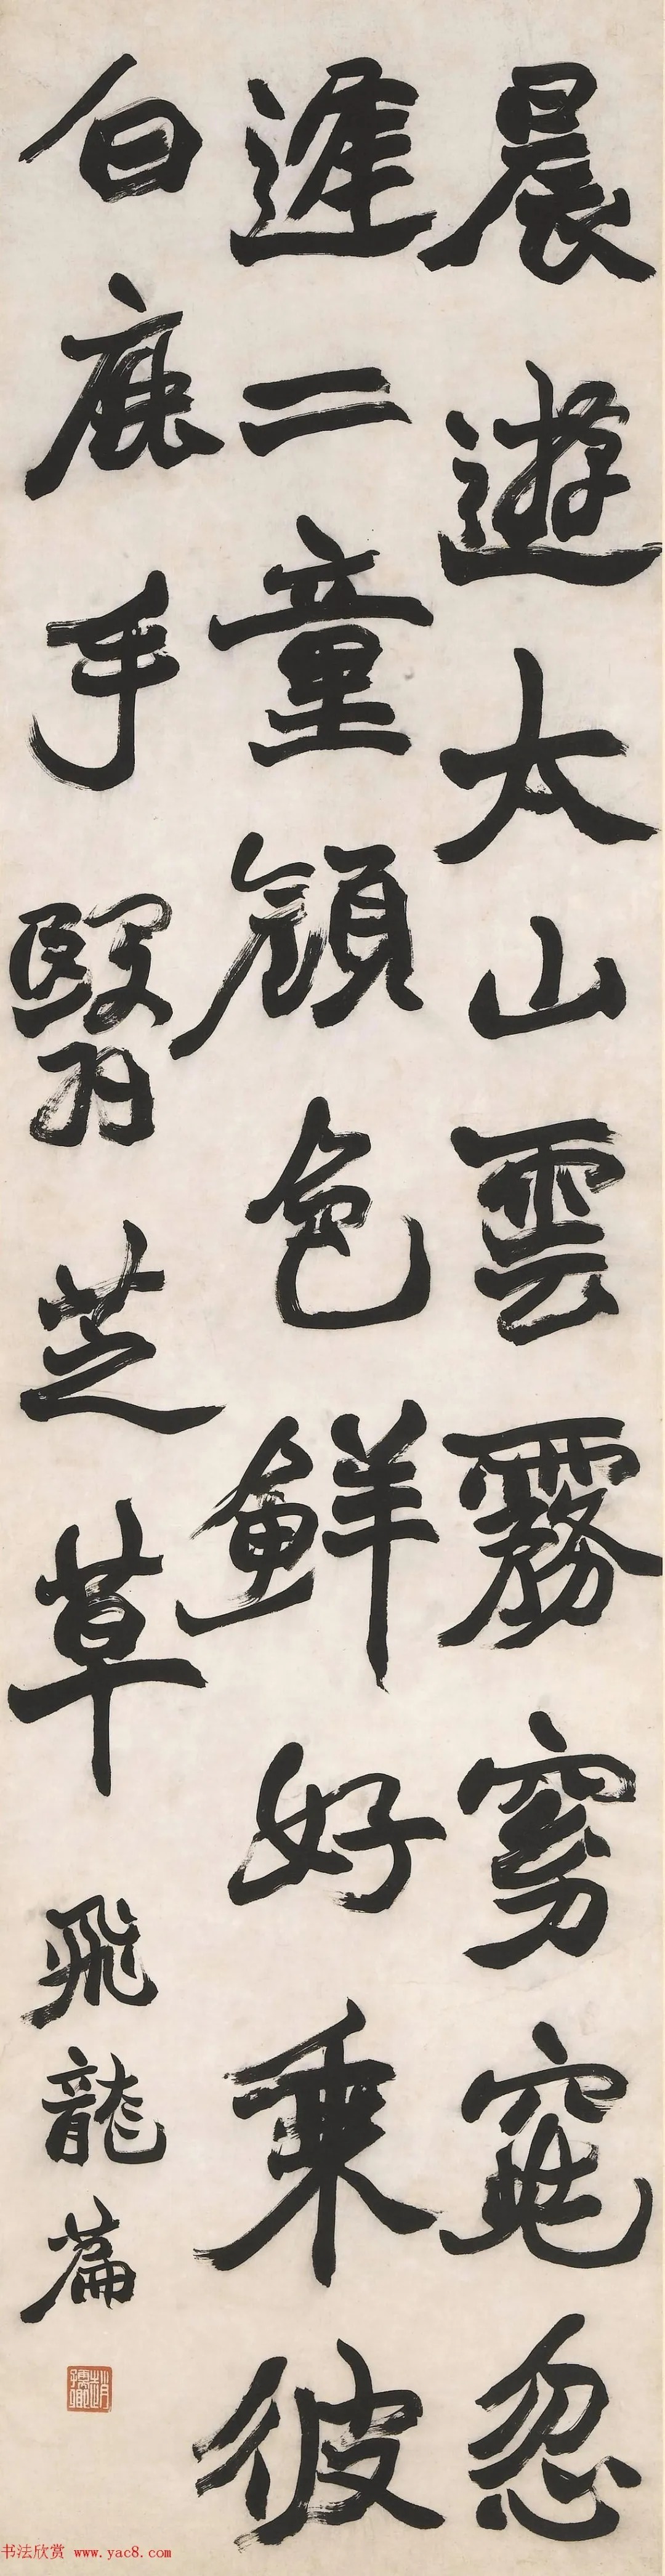 晨遊太山雲霧窈窕忽
逢二童顏色鮮好乘彼
白鹿手翳芝草 飛龍篇
书法欣赏 www.yac8.com